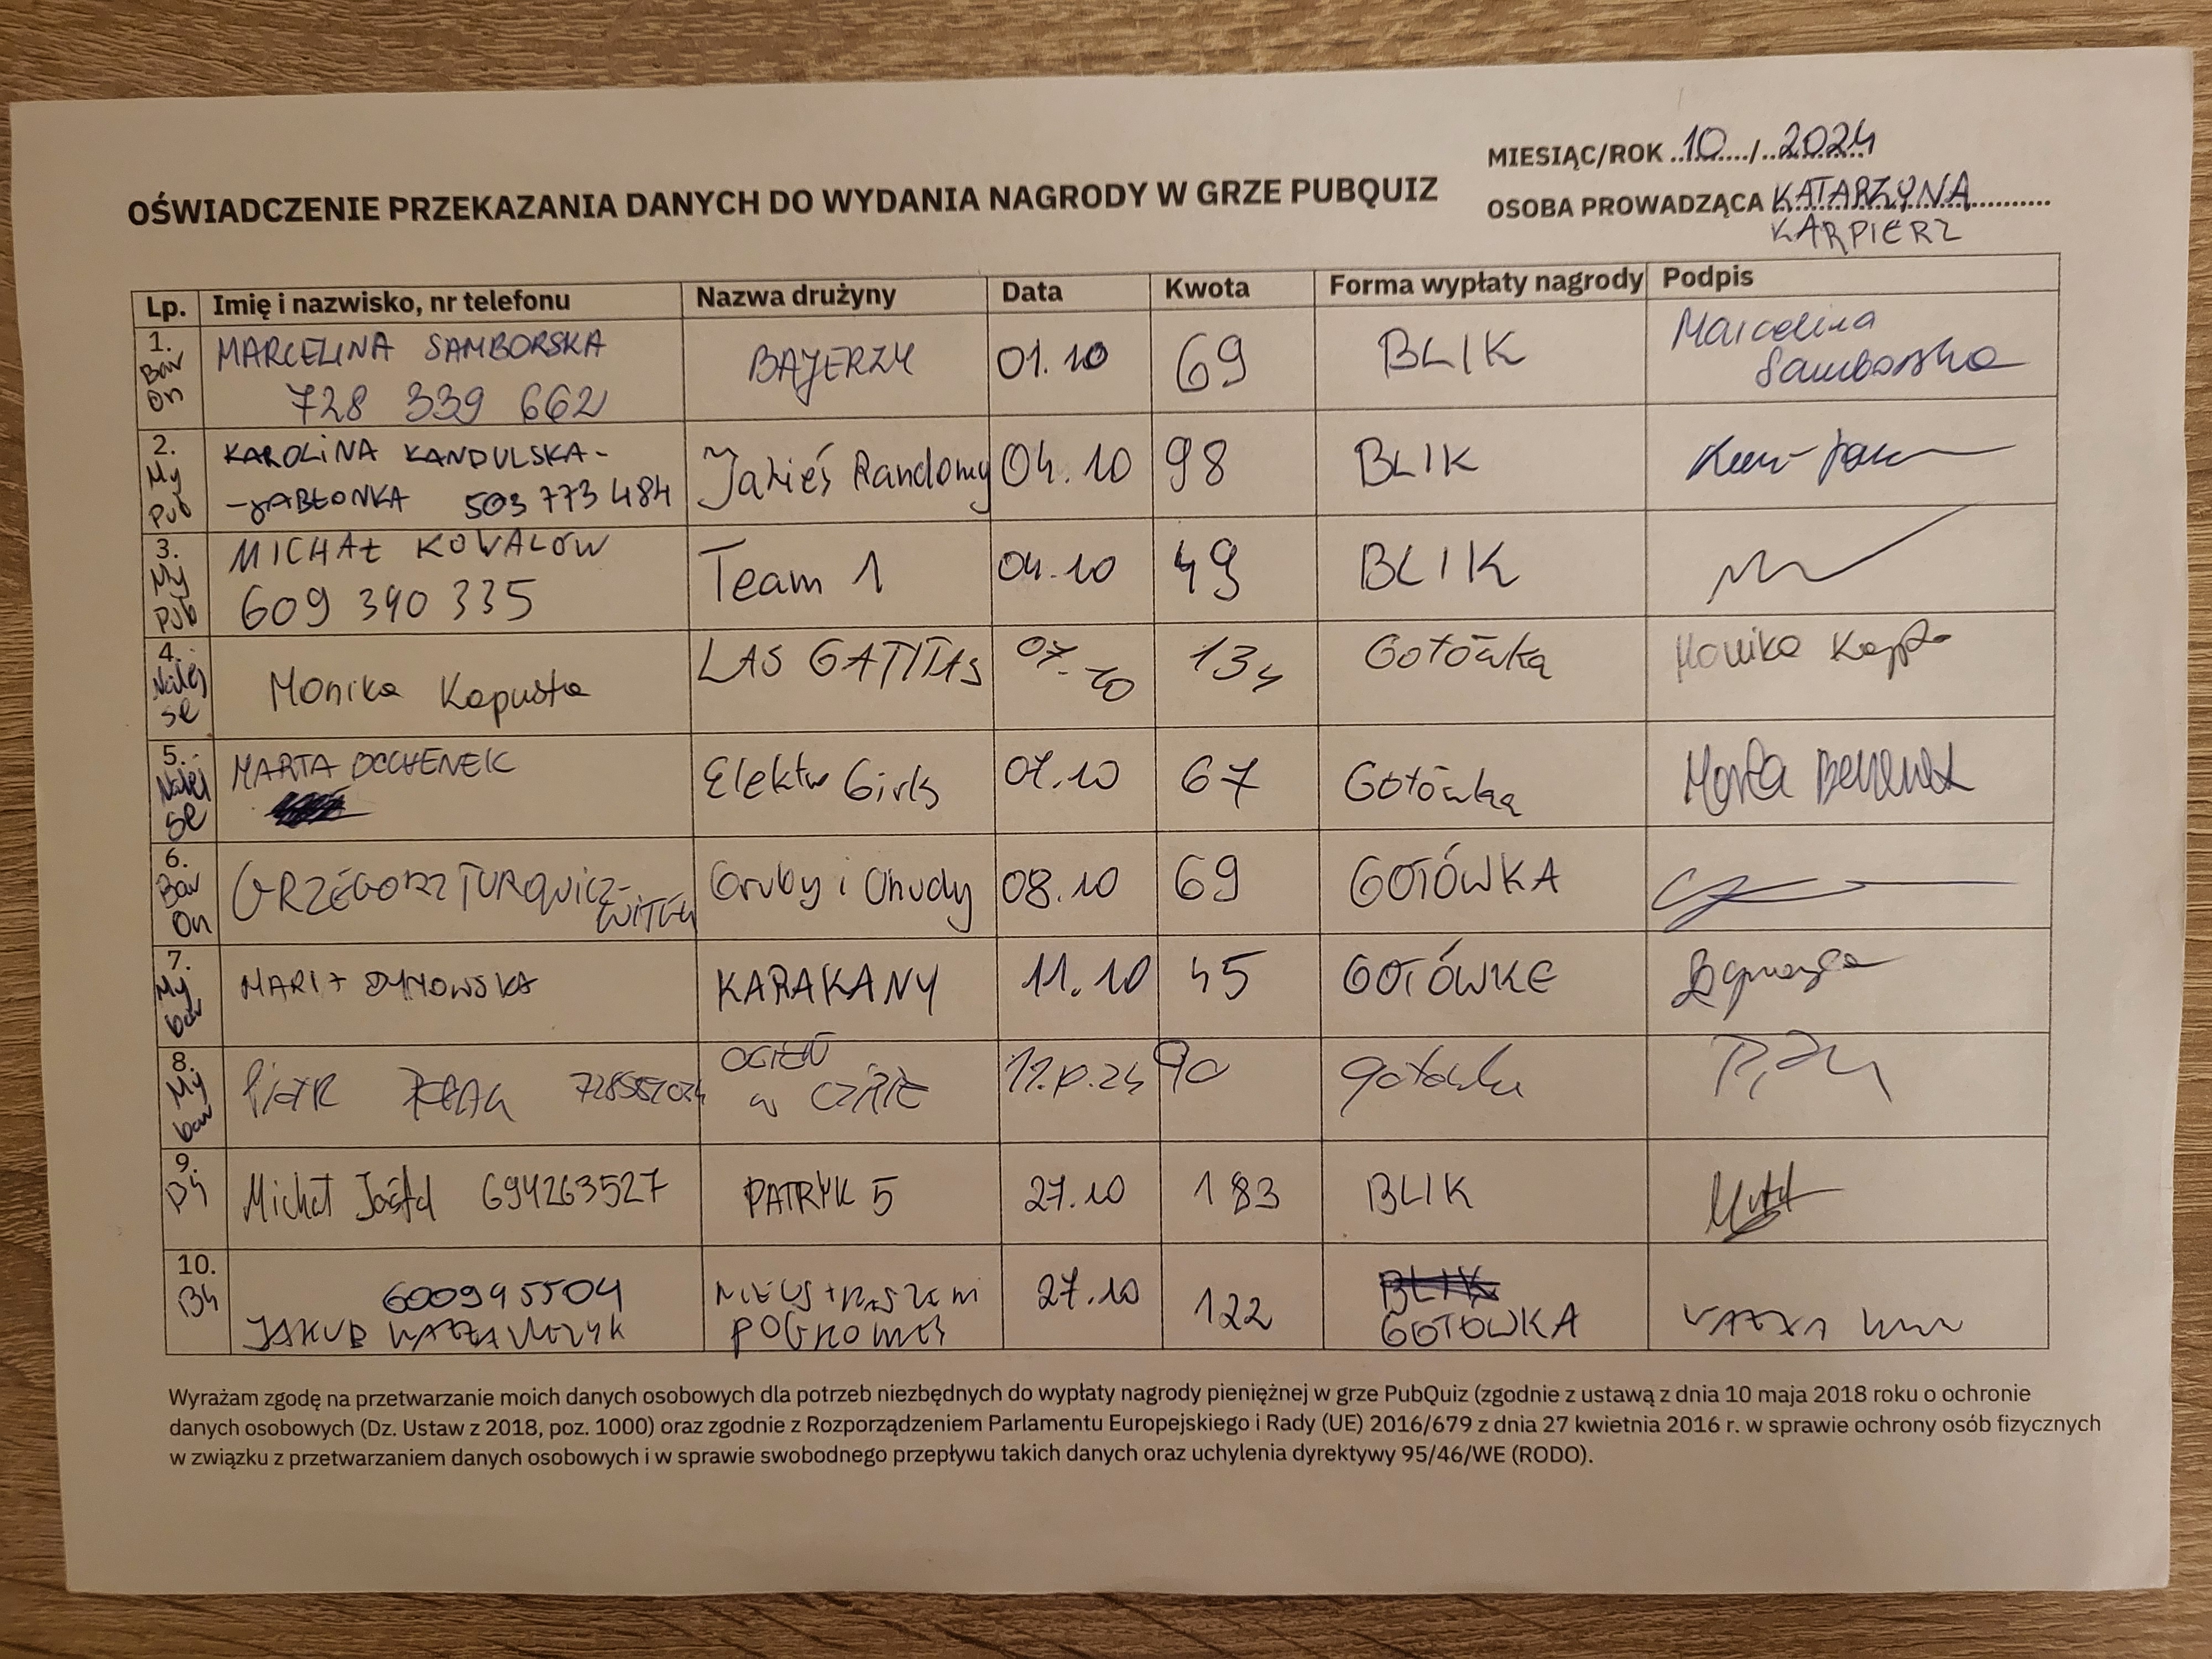 MIESIĄC/ROK ..10...../..2024
OŚWIADCZENIE PRZEKAZANIA DANYCH DO WYDANIA NAGRODY W GRZE PUBQUIZ
OSOBA PROWADZĄCA KATARZYNA
KARPIERZ
Lp. Imię i nazwisko, nr telefonu Nazwa drużyny Data Kwota Forma wypłaty nagrody Podpis
1. Bar On MARCELINA SAMBORSKA BAJERZY 01.10 69 BLIK Marcelina Samborska
728 339 662
2. My Pub KAROLINA KANDULSKA- Jakieś Randomy 04.10 98 BLIK
-JABŁONKA 503 773 484
3. My Pub MICHAŁ KOWALÓW Team 1 04.10 49 BLIK
609 390 335
4. Nalej se Monika Kapusta LAS GATITAS 07.10 134 Gotówka Monika
5. Nalej se MARTA Elektro Girls 07.10 67 Gotówka Marta
6. Bar On GRZEGORZ Gruby i Chudy 08.10 69 GOTÓWKA
7. My bar DYMOWSKA KARAKANY 11.10 45 GOTÓWKE
8. My bar Piotr OGIEŃ w 90 gotówka
9. B4 Michał 694263527 PATRYK 5 27.10 183 BLIK
10. B4 600945504 27.10 122 GOTÓWKA
JAKUB
Wyrażam zgodę na przetwarzanie moich danych osobowych dla potrzeb niezbędnych do wypłaty nagrody pieniężnej w grze PubQuiz (zgodnie z ustawą z dnia 10 maja 2018 roku o ochronie
danych osobowych (Dz. Ustaw z 2018, poz. 1000) oraz zgodnie z Rozporządzeniem Parlamentu Europejskiego i Rady (UE) 2016/679 z dnia 27 kwietnia 2016 r. w sprawie ochrony osób fizycznych
w związku z przetwarzaniem danych osobowych i w sprawie swobodnego przepływu takich danych oraz uchylenia dyrektywy 95/46/WE (RODO).